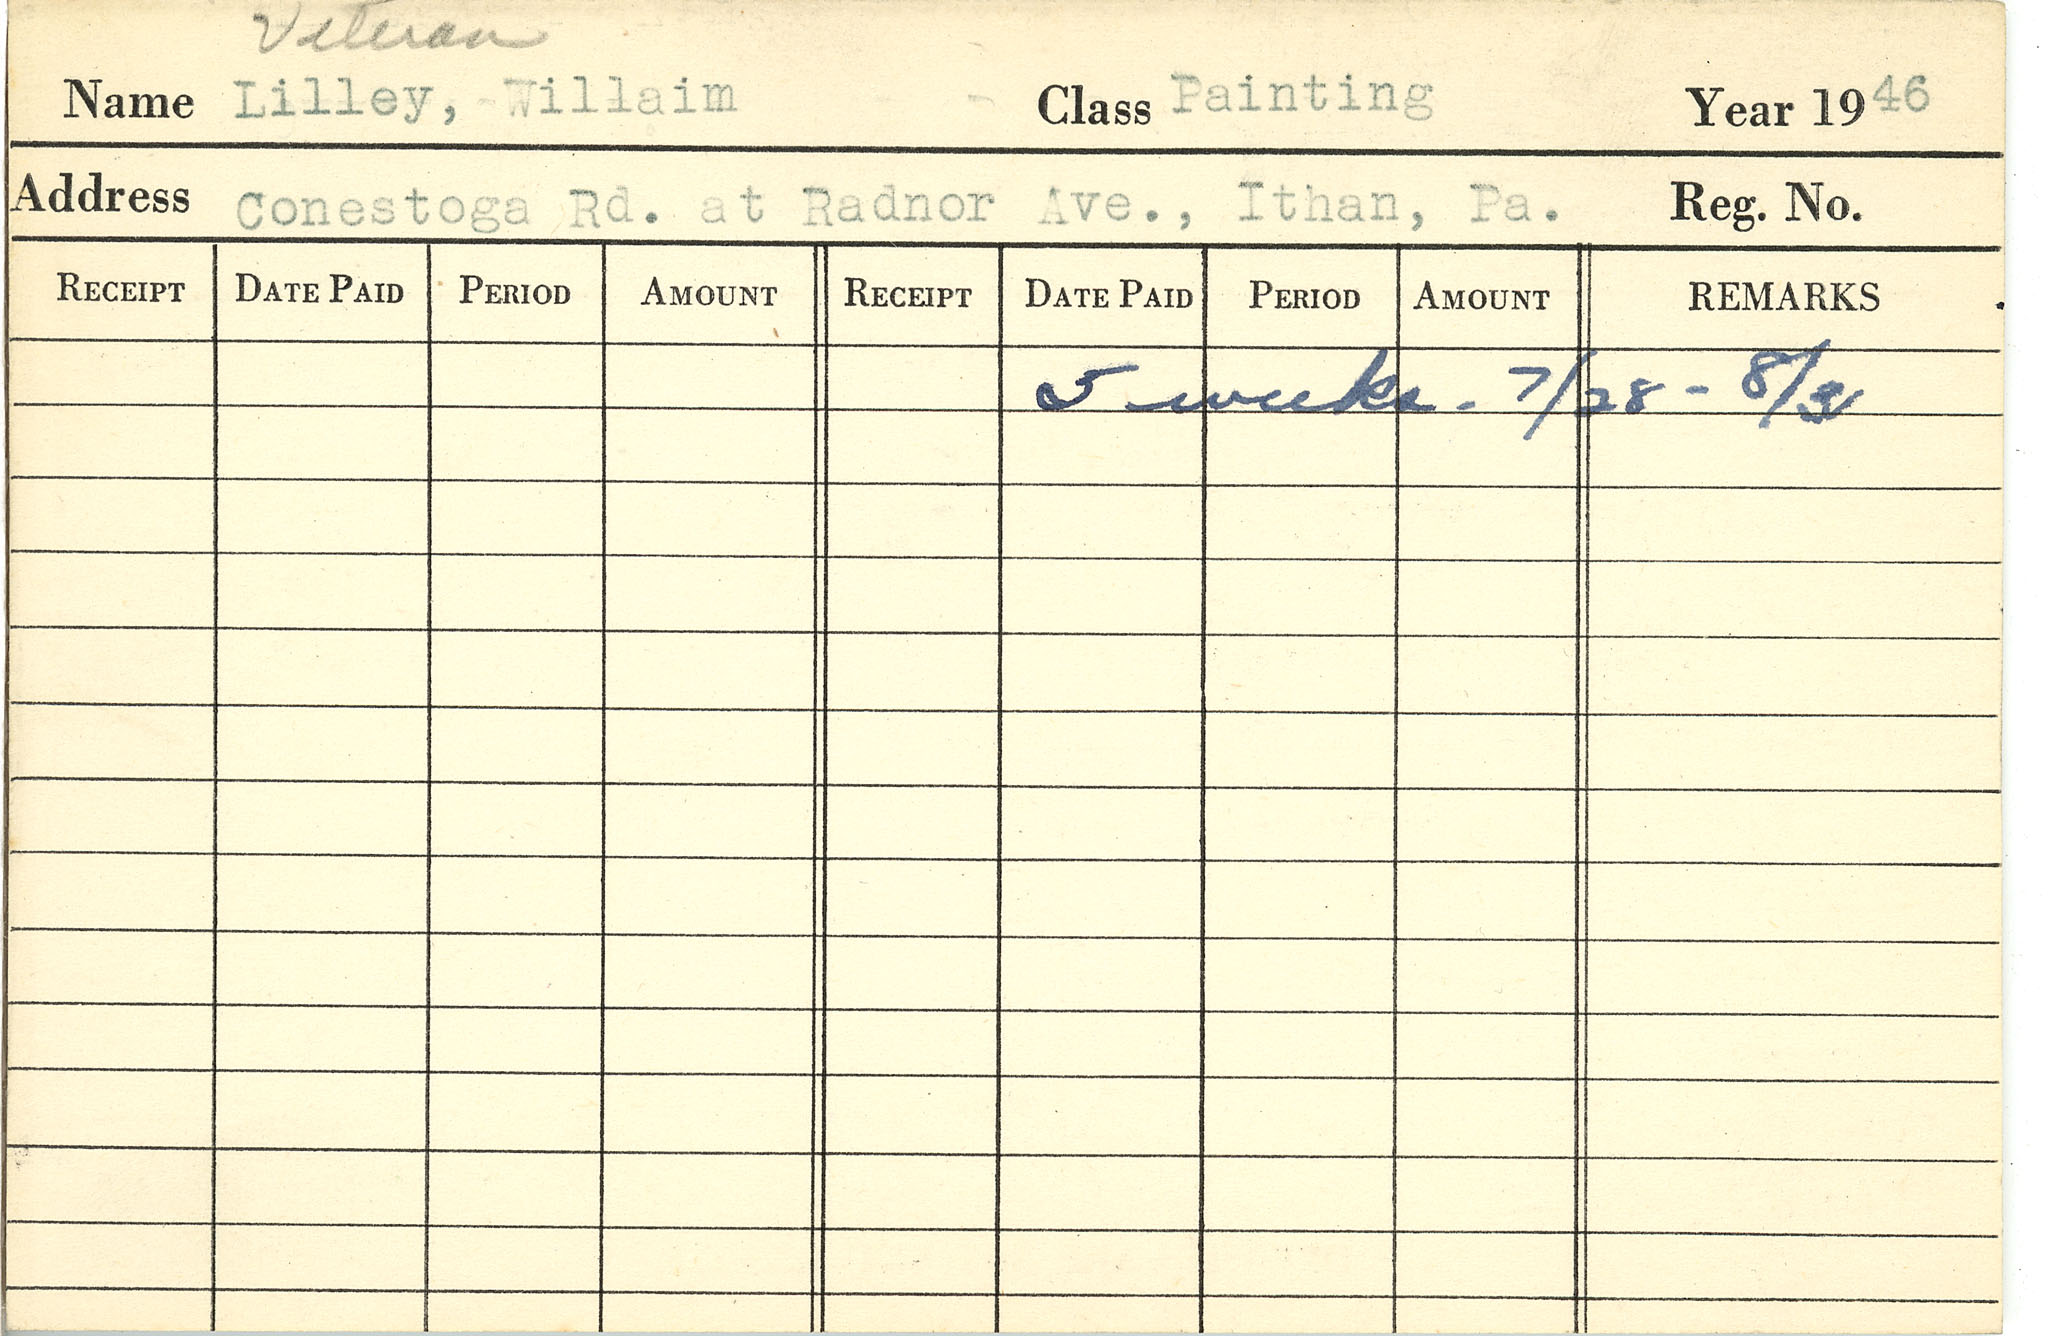 Veteran
Name Lilley, Willaim Class Painting Year 1946
Address Conestoga Rd. at Radnor Ave., Ithan, Pa. Reg. No.
RECEIPT DATE PAID PERIOD AMOUNT RECEIPT DATE PAID PERIOD AMOUNT REMARKS
5 weeks - 7/28 - 8/31